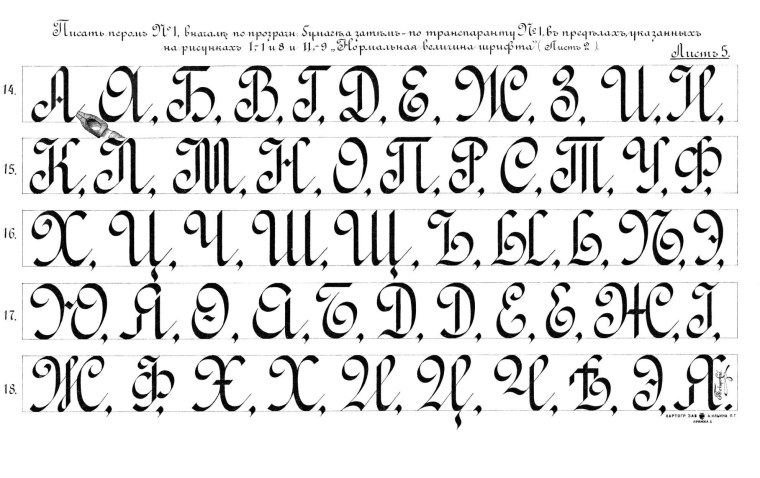 Писать перомъ №1, вначалѣ по прозрачн. бумагѣ, а затѣмъ - по транспаранту №1, въ предѣлахъ, указанныхъ
на рисункахъ 1.-7 и 8 и 11.-9 „Нормальная величина шрифта" (Листъ 2.)
Листъ 5.
14. А А, Б, В, Г, Д, Е, Ж, З, И, Й,
15. К, Л, М, Н, О, П, Р, С, Т, У, Ф,
16. Х, Ц, Ч, Ш, Щ, Ъ, Ы, Ь, Ѣ, Э,
17. Ю, Я, Ѳ, А, Б, Д, Д, Е, Е, Ж, І,
18. Ж, Ф, Х, Х, И, Ц, Ч, Ѣ, Э, Я.
КАРТОГР. ЗАВ. А. ИЛЬИНА, П. Г.